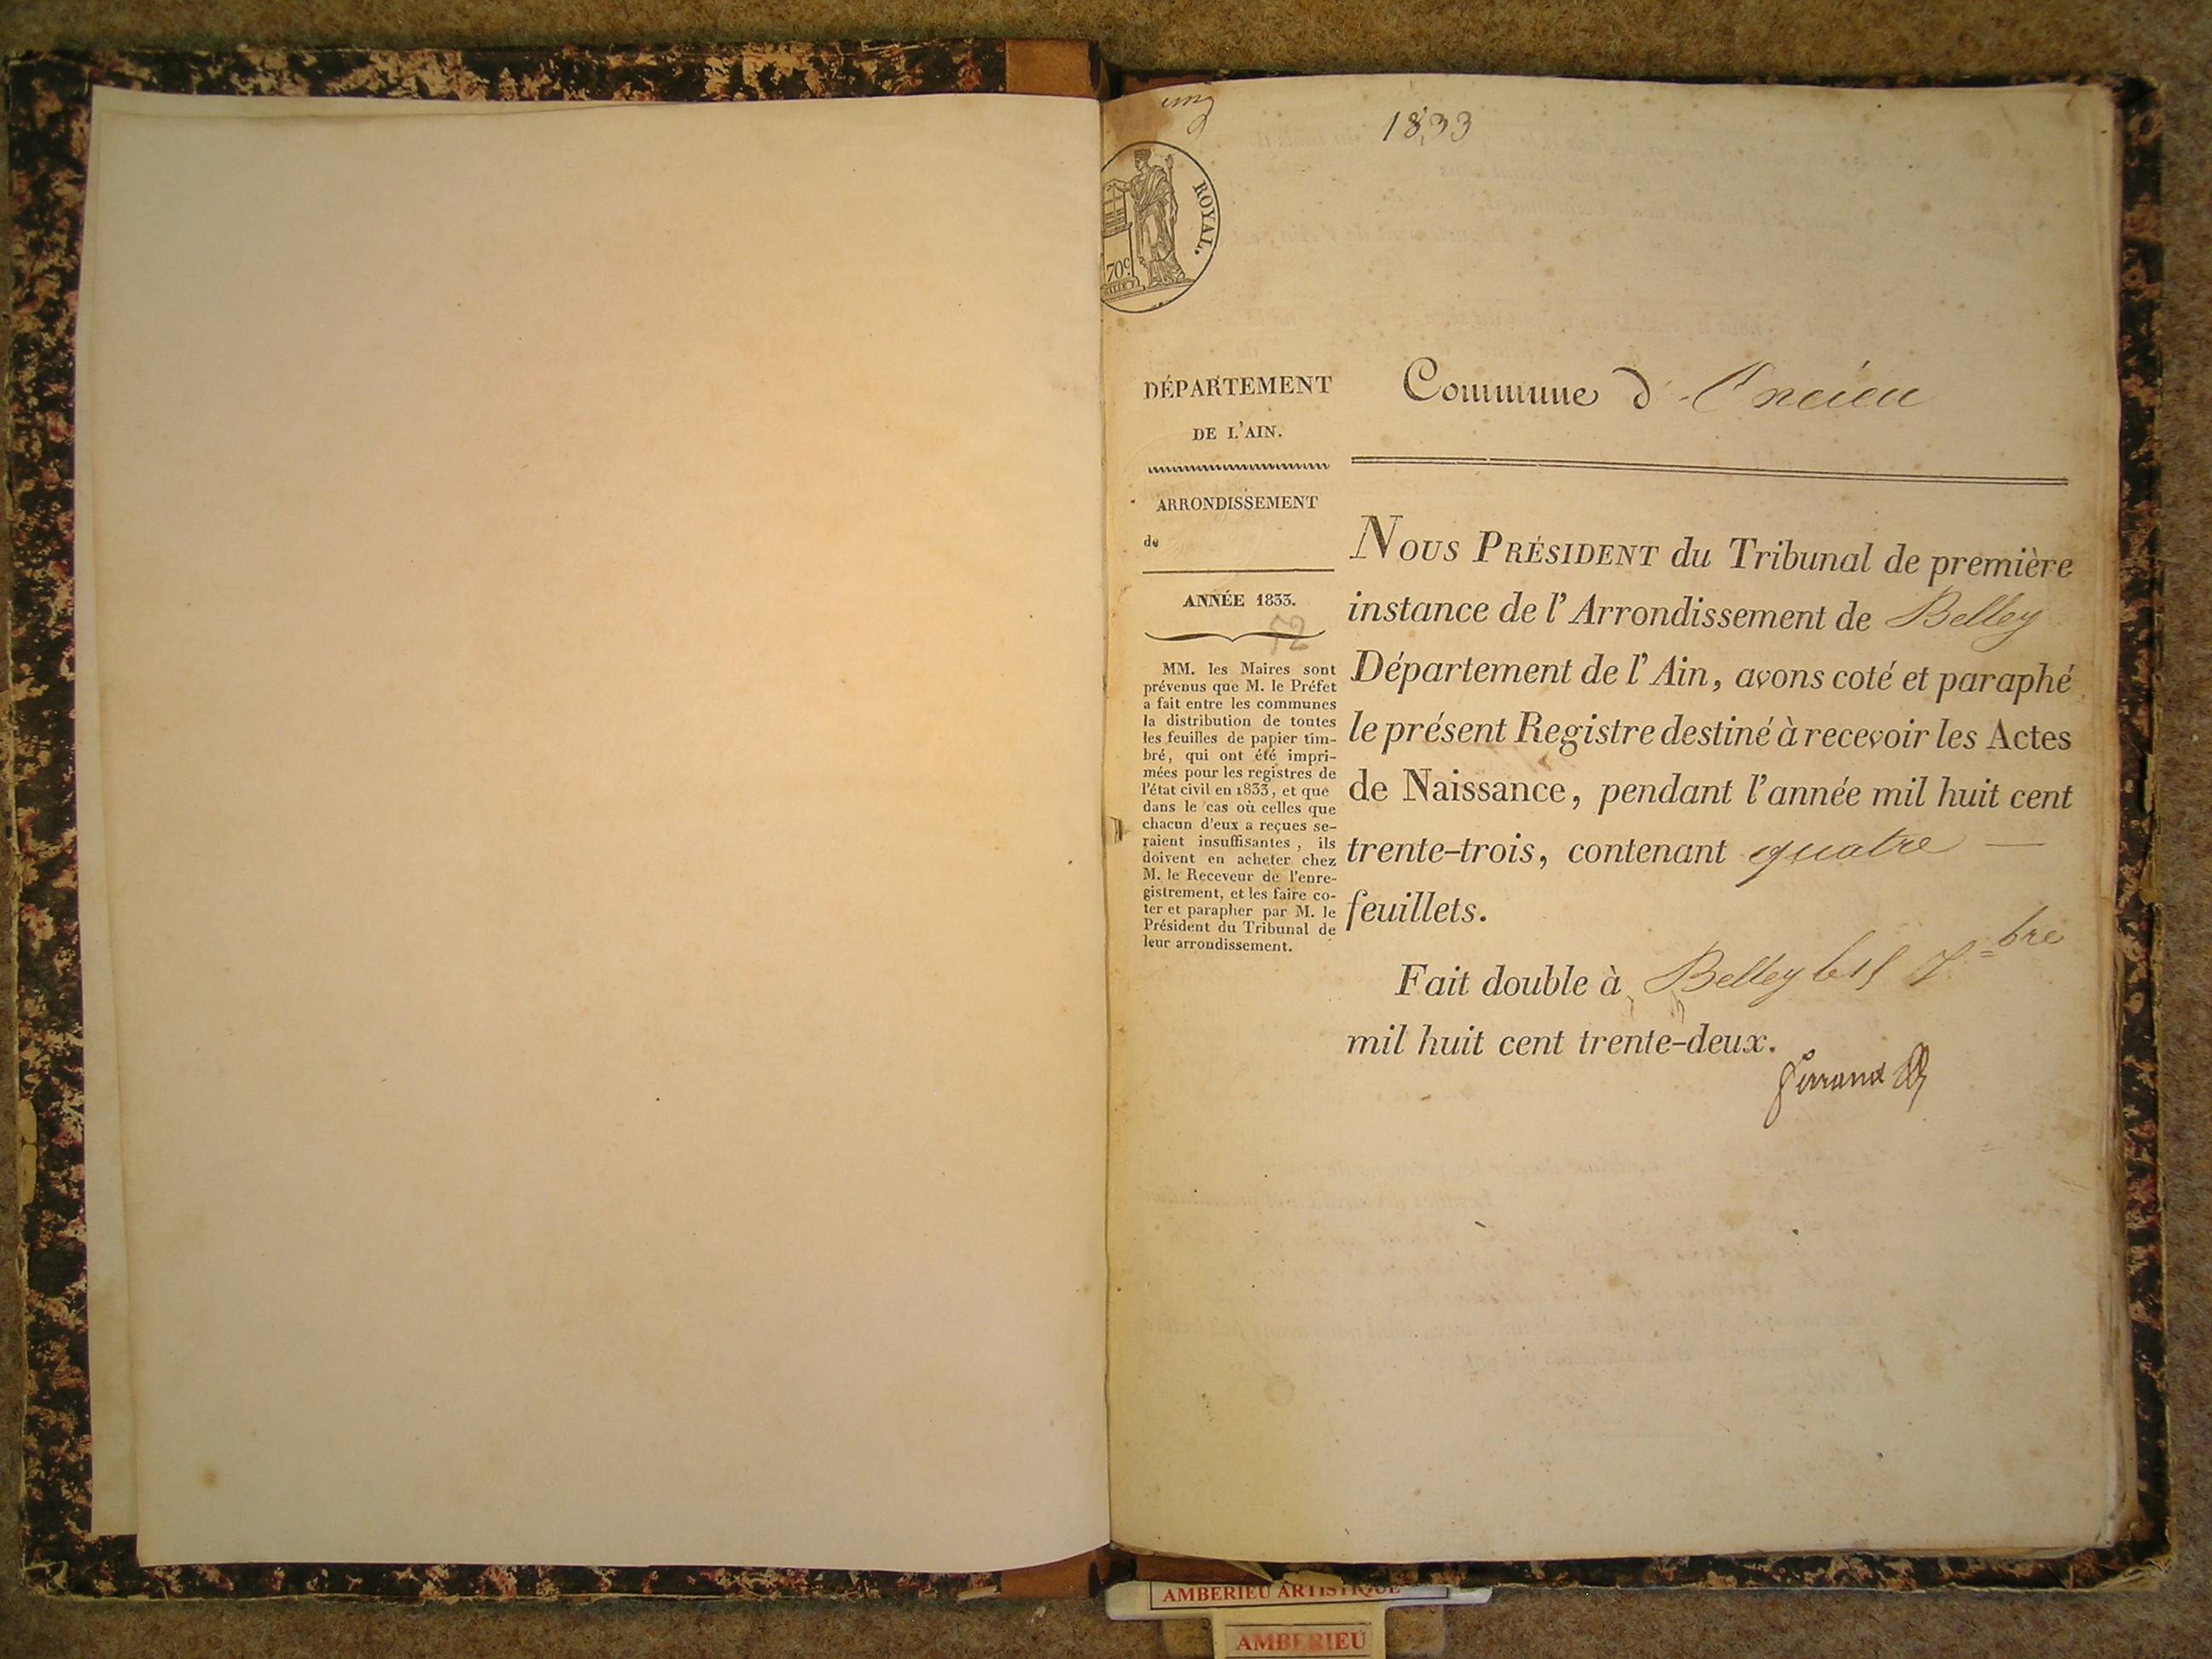 1833
ROYAL.
70c
DÉPARTEMENT
DE L'AIN.
ARRONDISSEMENT
de
ANNÉE 1833.
52
MM. les Maires sont
prévenus que M. le Préfet
a fait entre les communes
la distribution de toutes
les feuilles de papier tim-
bré, qui ont été impri-
mées pour les registres de
l'état civil en 1833, et que
dans le cas où celles que
chacun d'eux a reçues se-
raient insuffisantes, ils
doivent en acheter chez
M. le Receveur de l'enre-
gistrement, et les faire co-
ter et parapher par M. le
Président du Tribunal de
leur arrondissement.
Commune d'Oncieu
NOUS PRÉSIDENT du Tribunal de première
instance de l'Arrondissement de Belley
Département de l'Ain, avons coté et paraphé
le présent Registre destiné à recevoir les Actes
de Naissance, pendant l'année mil huit cent
trente-trois, contenant quatre —
feuillets.
Fait double à Belley le 15 7bre
mil huit cent trente-deux.
AMBERIEU ARTISTIQUE
AMBERIEU